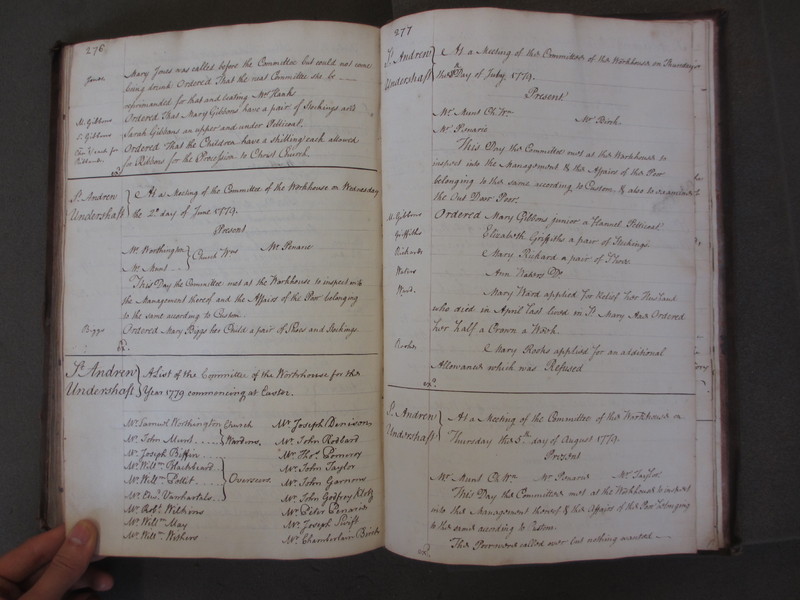 276
Jones Mary Jones was called before the Committee but could not come
being drunk Ordered That the next Committee she be
reprimanded for that and beating Mrs Hawk
M. Gibbons Ordered That Mary Gibbons have a pair of Stockings and
S. Gibbons Sarah Gibbons an upper and under Petticoat.
Ordered That the Children have a shilling each allowed
for Ribbons for the Procession to Christ Church.
St. Andrew Undershaft
At a Meeting of the Committee of the Workhouse on Wednesday
the 2d. day of June 1779.
Present
Mr. Worthington Church Wns Mr. Penarie
Mr. Munt
This Day the Committee met at the Workhouse to inspect into
the Management thereof and the Affairs of the Poor belonging
to the same according to Custom
Biggs Ordered Mary Biggs her Child a pair of Shoes and Stockings.
ex.
St. Andrew Undershaft
A List of the Committee of the Workhouse for the
Year 1779 commencing at Easter.
Mr. Samuel Worthington Church Mr. Joseph Denison
Mr. John Munt Wardens. Mr. John Rodbard
Mr. Joseph Biffin Mr. Thos. Pommroy
Mr. Willm. Blackheard Mr. John Taylor
Mr. Willm. Pollit Overseers. Mr. John Garrons
Mr. Edwd. Vanhartals Mr. John Godfrey Klotz
Mr. Robt. Wilkins Mr. Peter Penarie
Mr. Willm. May Mr. Joseph Swift
Mr. Willm. Withers Mr. Chamberlain Birch
277
St. Andrew Undershaft
At a Meeting of the Committee of the Workhouse on Thursday
the Day of July, 1779.
Present
Mr. Munt Ch. Wn. Mr. Birch.
Mr. Penarie
This Day the Committee met at the Workhouse to
inspect into the Management & the Affairs of the Poor
belonging to the same according to Custom & also to examine
the Out Door Poor.
M. Gibbons Ordered Mary Gibbons junior a Flannel Petticoat.
Griffiths Elizabeth Griffiths a pair of Stockings.
Richards Mary Richard a pair of Shoes.
Waters Ann Waters Do.
Ward. Mary Ward applied for Relief her Husband
who died in April last lived in St. Mary Axe Ordered
her half a Crown a Week.
Rooke Mary Rooks applied for an additional
Allowance which was Refused.
exd.
St. Andrew Undershaft
At a Meeting of the Committee of the Workhouse on
Thursday the 5th. day of August 1779.
Present
Mr. Munt Ch. Wn. Mr. Penarie Mr. Taylor
This Day the Committee met at the Workhouse to inspect
into the Management thereof & the Affairs of the Poor belonging
to the same according to Custom.
The Poor were called over but nothing wanted
ex.